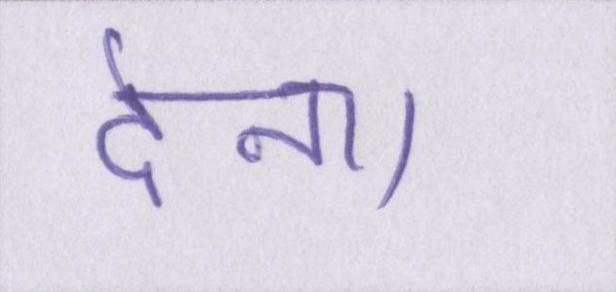 देना।